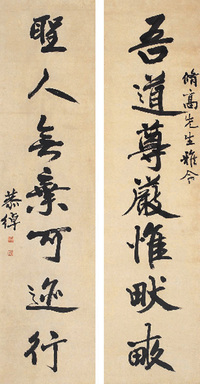 脩高先生雅令
吾道尊嚴惟畎畝
聖人無棄可行
恭綽